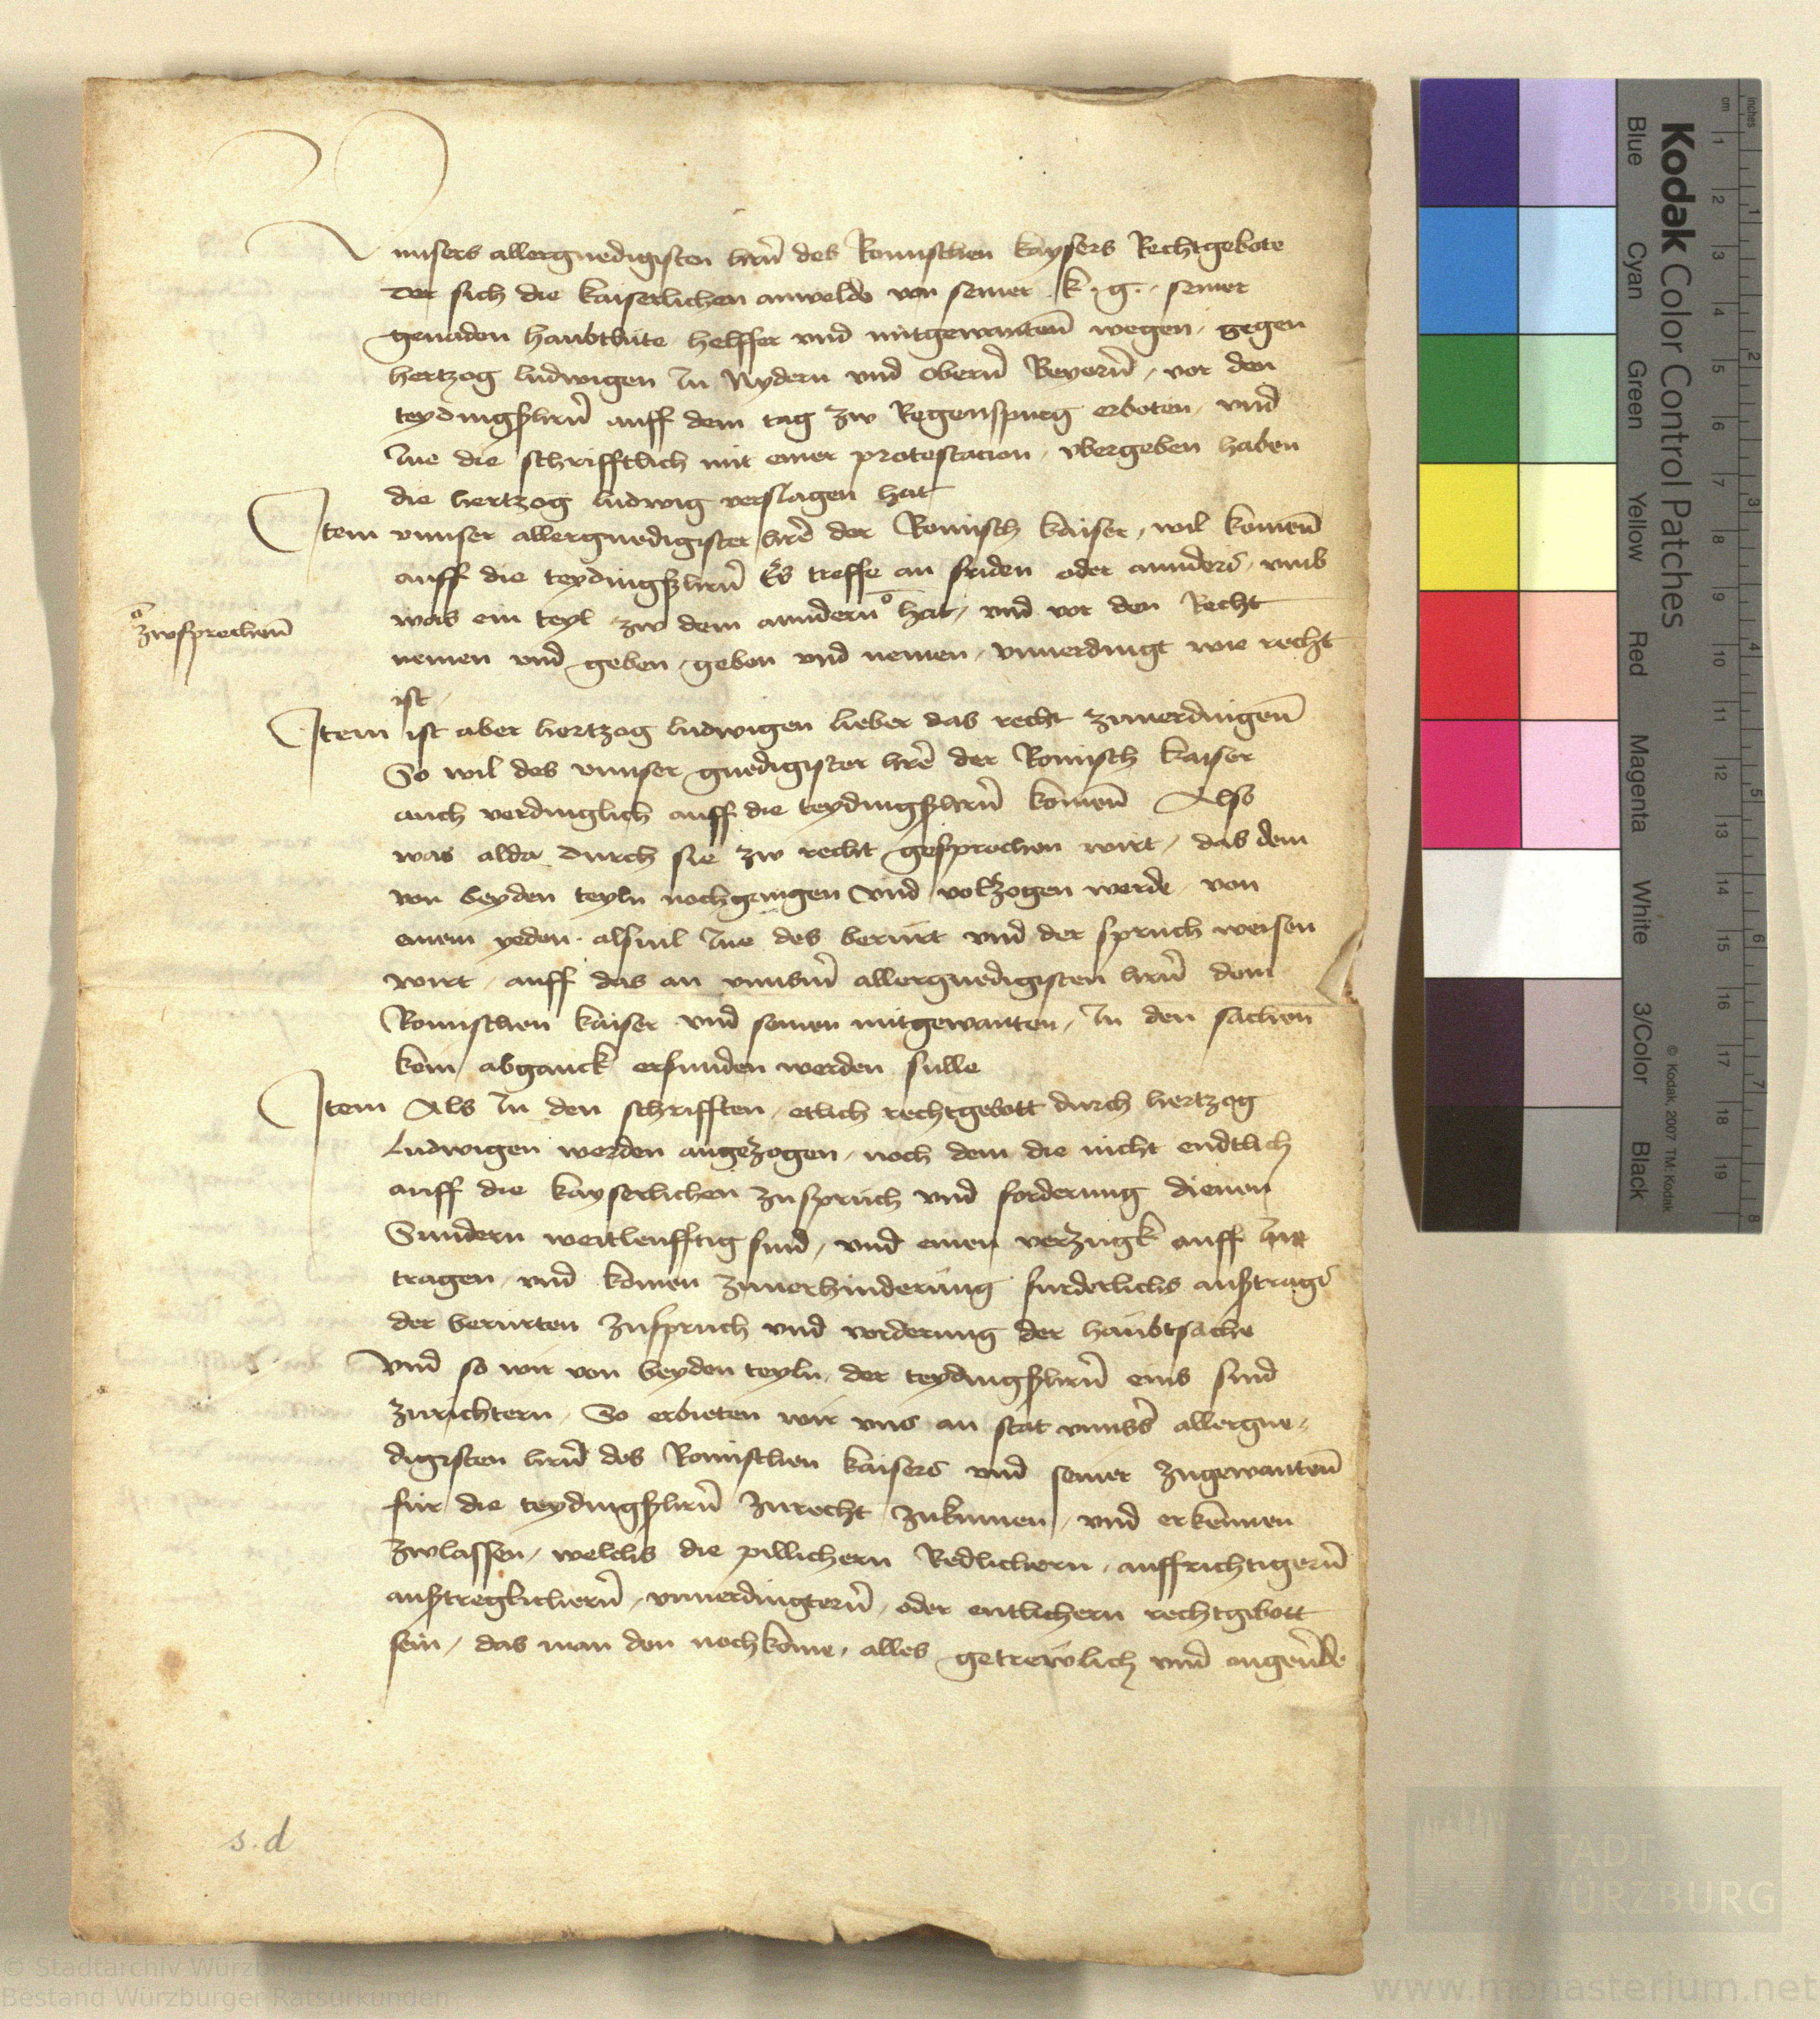 Vnnsers allergnedigisten hern̄ des Romischen kaysers Rechtgebote
Der sich die kaiserlichen anweldo von seiner k. g. seiner
genaden haubtlüte helffer vnd mitgewantenn̄ wegen, gegen
hertzog ludwigen In Nydern vnd obern̄ Beyern̄, vor den
teydingßhern̄ auff dem tag zw Regenspurg erboten, vnd
Ine die schrifftlich mit einer protestacion, vbergeben haben
die hertzog ludwig verslagen hat
Item vnnser allergnedigister hrē der Romisch kaiser, wil komen̄
auff die teydingßhern̄ Es treffe an friden oder annders, vmb
was ein teyl zw dem anndern̄ hat, vnd vor den Recht
zwsprechen̄
nemen vnd geben, geben vnd nemen, vnuerdingt wie recht
ist
Item ist aber hertzog ludwigen lieber das recht zuuerdingen̄
So wil des vnnser gnedigister hrē der Romisch kaiser
auch verdinglich auff die teydingßhern̄ komen̄ Also
was alda durch sie zw recht gesprochen wirt, das dem
von beyden teyln nochgangen vnd volzogen werde, von
einem yeden, alsuil Ine des berürt vnd der spruch weisen
wirt, auff das an vnnserm̄ allergnedigisten hern̄ dem
Romischen kaiser vnd seinen mitgewanten, In den sachen̄
kein abganck erfunden werden sülle
Item Als In den schrifften, etlich rechtgebott durch hertzog
Ludwigen werden angezogen, noch dem die nicht endtlich
auff die kayserlichen zuspruch vnd forderung dienen
Sundern weitleufftig sind, vnd einen verzugk auff In
tragen, vnd komen zuuerhinderüng furderlichs außtrags
der berürten zuspruch vnd vorderung der haübtsache
Vnd so wir von beyden teyln der teydingßhern̄ eins sind
zurichtern, So erbieten wir vns an stat vnnsers allergne-
digisten hern̄ des Romischen kaisers vnd seiner zugewanten̄
für die teydingßhern̄ zurecht zukumen, vnd erkennen
zwlassen, welchs die pillichern Redlichern, auffrichtigern̄
außtreglichern̄, vnuerdingtern̄, oder entlichern rechtgebott
sein, das man den nochkome, alles getrewlich vnd ongeuerde
s.d
Kodak Color Control Patches
Blue Cyan Green Yellow Red Magenta White 3/Color Black
© Kodak, 2007 TM: Kodak
cm 1 2 3 4 5 6 7 8 9 10 11 12 13 14 15 16 17 18 19
inches 1 2 3 4 5 6 7 8
STADT
WÜRZBURG
© Stadtarchiv Würzburg
Bestand Würzburger Ratsurkunden
www.monasterium.net